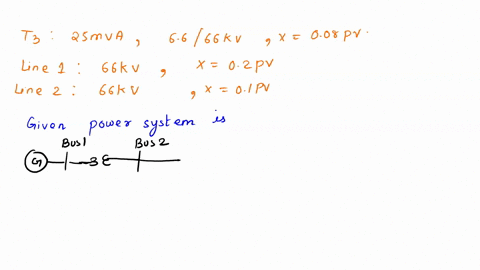 T3 : 25mVA , 6.6/66kv , x = 0.08pv.
Line 1 : 66kv , x = 0.2pv
Line 2 : 66kv , x = 0.1pv
Given power system is
Bus1 Bus2
G